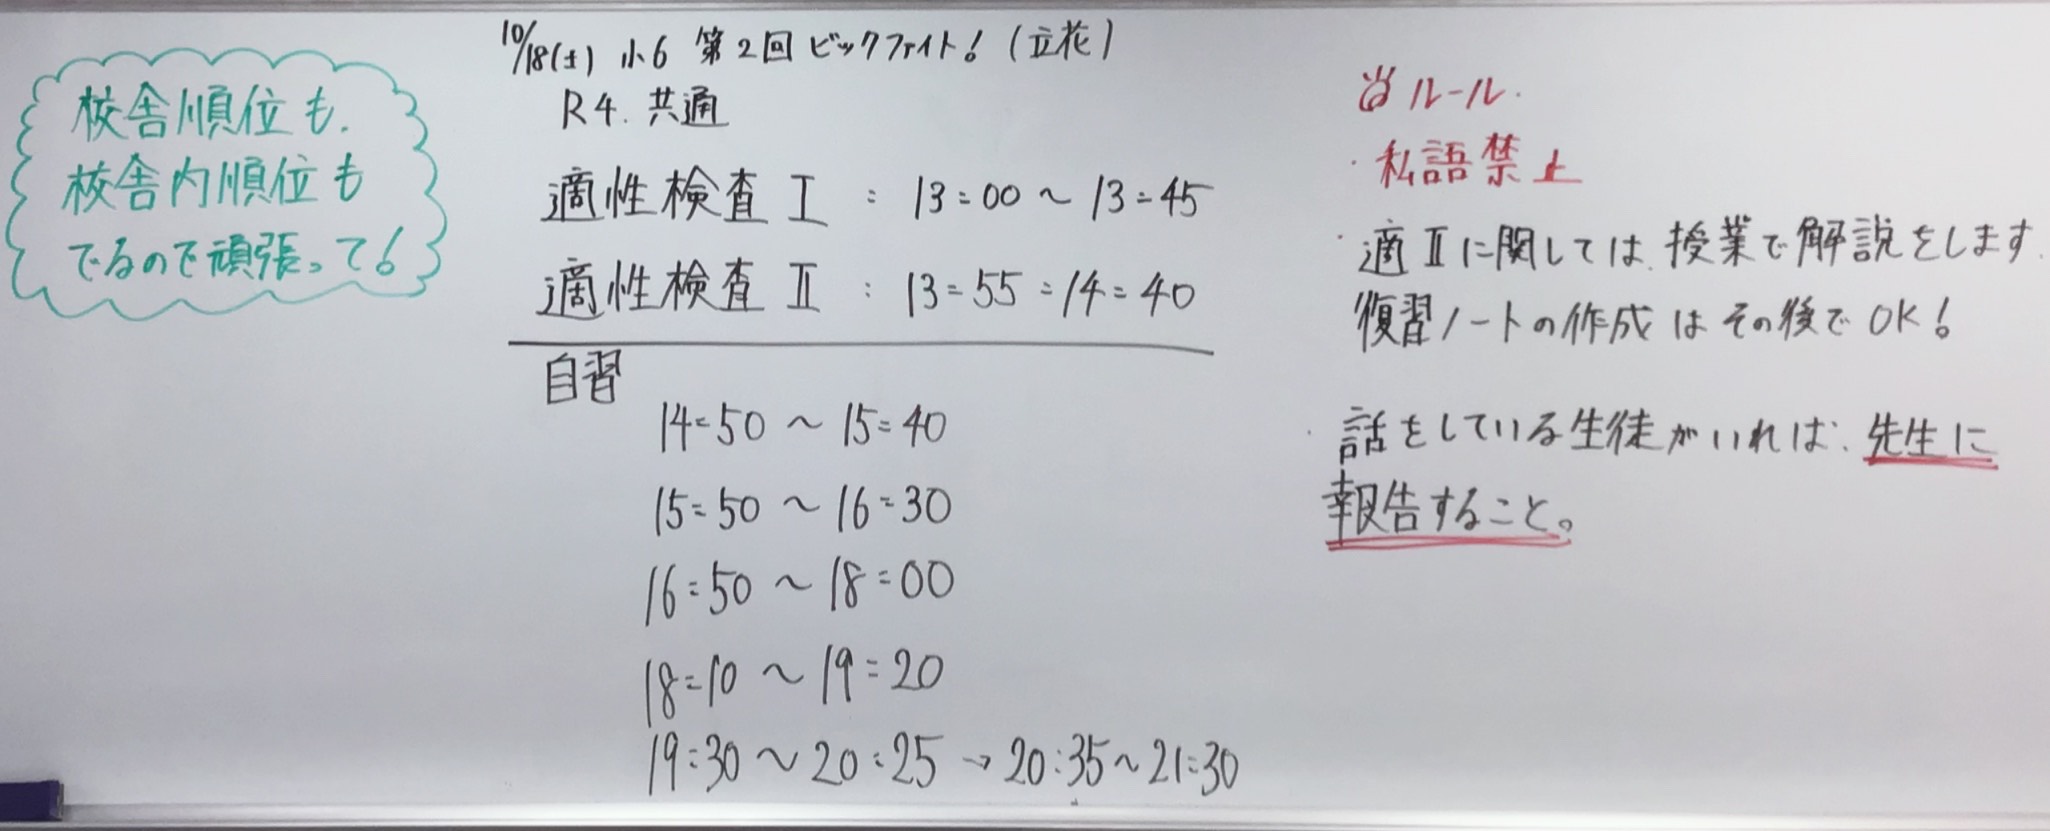 校舎順位も、
校舎内順位も
でるので頑張って!
10/18(土) 小6 第2回 ビックファイト!(立花)
R4. 共通
適性検査 Ⅰ : 13:00 ～ 13:45
適性検査 Ⅱ : 13:55 : 14:40
自習
14:50 ～ 15:40
15:50 ～ 16:30
16:50 ～ 18:00
18:10 ～ 19:20
19:30 ～ 20:25 → 20:35 ～ 21:30
ルール.
・私語禁止
・適Ⅱに関しては、授業で解説をします.
復習ノートの作成はその後でOK!
・話をしている生徒がいれば、先生に
報告すること。